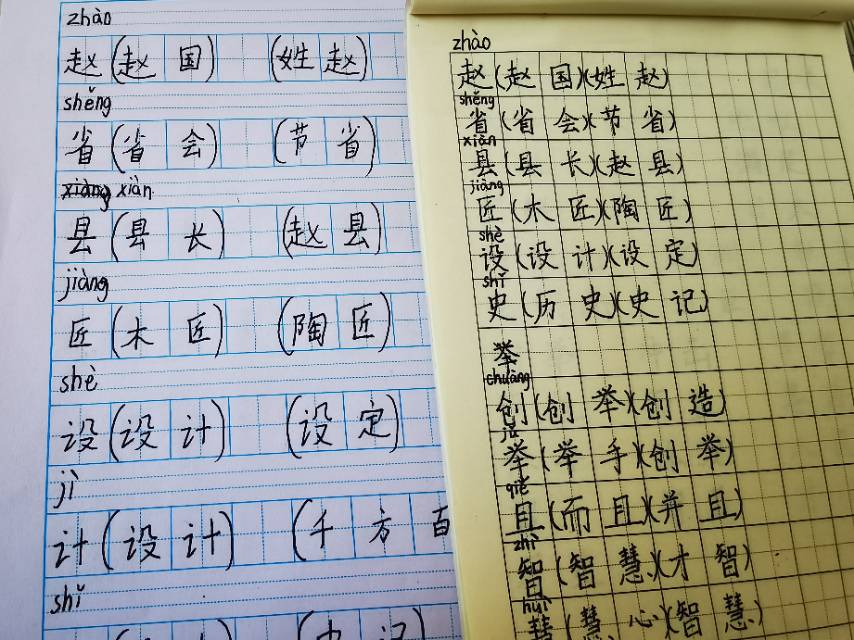 zhào
赵(赵国) (姓赵)
shěng
省(省会) (节省)
xiàn
县(县长) (赵县)
jiàng
匠(木匠) (陶匠)
shè
设(设计) (设定)
jì
计(设计) (千方百
shǐ
zhào
赵(赵国)(姓赵)
shěng
省(省会)(节省)
xiàn
县(县长)(赵县)
jiàng
匠(木匠)(陶匠)
shè
设(设计)(设定)
shǐ
史(历史)(史记)
举
chuàng
创(创举)(创造)
jǔ
举(举手)(创举)
qiě
且(而且)(并且)
zhì
智(智慧)(才智)
huì
慧(慧心)(智慧)